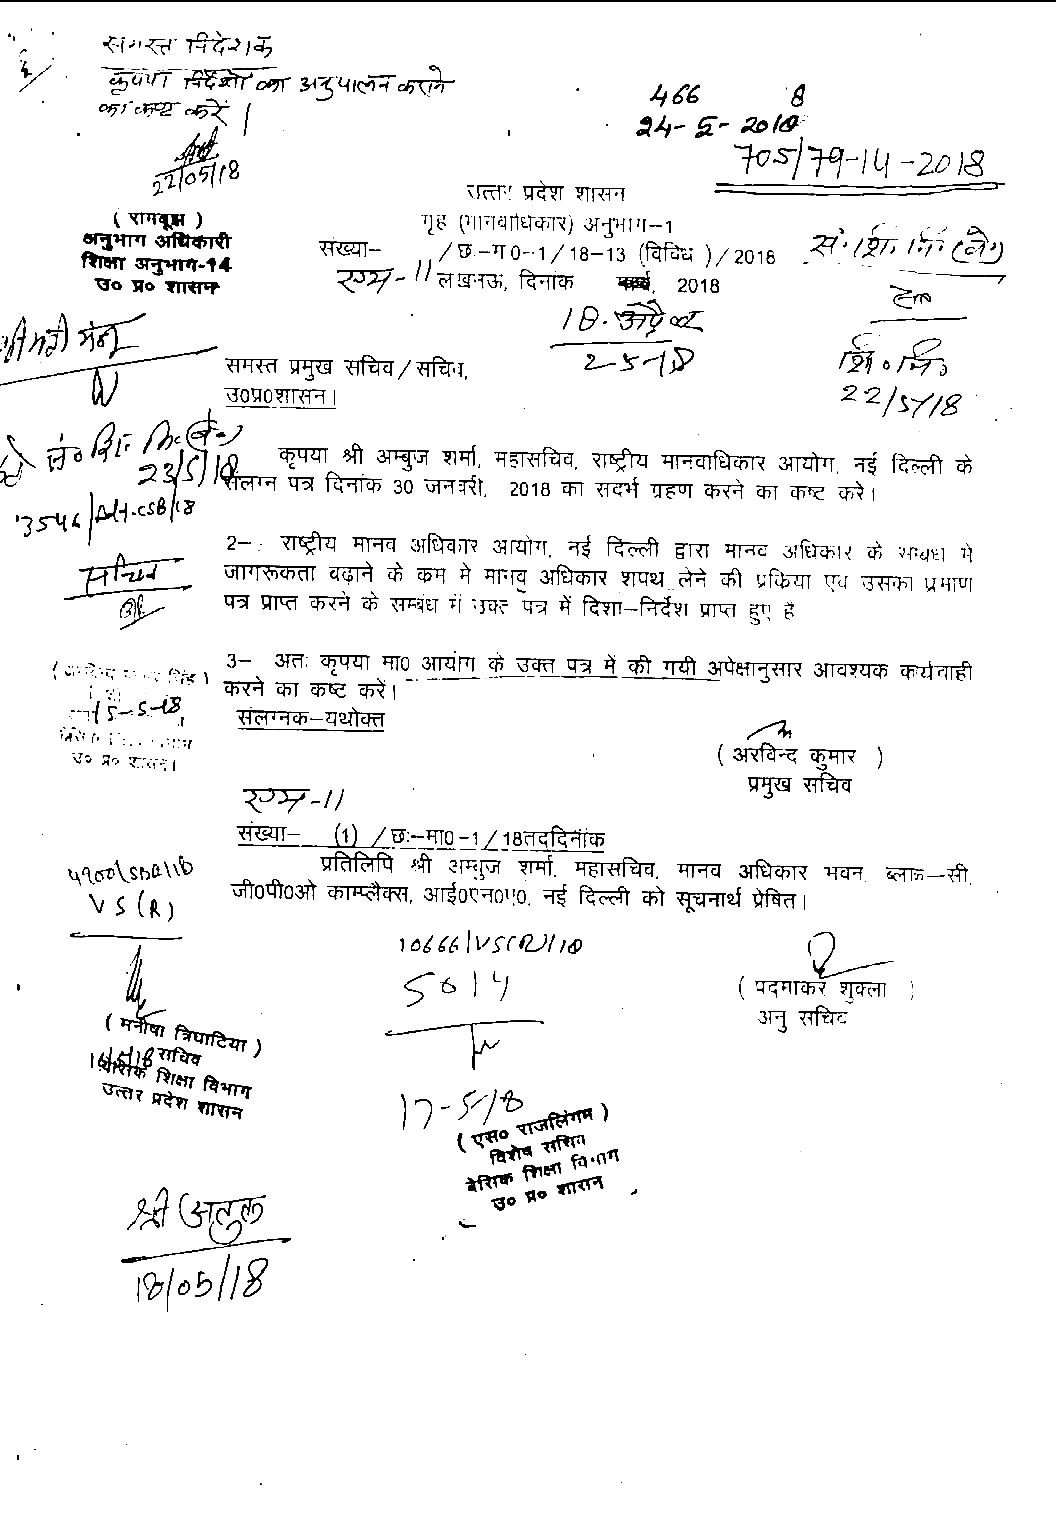 समस्त निदेशक
कृपया निर्देशों का अनुपालन कराने
का कष्ट करें।
22/05/18
466 8
24-5-2018
705/79-14-2018
उत्तर प्रदेश शासन
गृह (मानवाधिकार) अनुभाग-1
( रामबृक्ष )
अनुभाग अधिकारी
शिक्षा अनुभाग-14
उ० प्र० शासन
संख्या- /छ:-म0-1/18-13 (विविध )/2018
लखनऊ, दिनांक 2018
18 अप्रैल
2-5-18
सं. शि. नि. (बे.)
शि० नि०
22/5/18
समस्त प्रमुख सचिव/सचिव,
उ0प्र0शासन।
23/5/18
कृपया श्री अम्बुज शर्मा, महासचिव, राष्ट्रीय मानवाधिकार आयोग, नई दिल्ली के
संलग्न पत्र दिनांक 30 जनवरी, 2018 का सदर्भ ग्रहण करने का कष्ट करे।
2- राष्ट्रीय मानव अधिकार आयोग, नई दिल्ली द्वारा मानव अधिकार के सम्बंध मे
जागरूकता बढ़ाने के कम मे मानव अधिकार शपथ लेने की प्रकिया एव उसका प्रमाण
पत्र प्राप्त करने के सम्बंध में उक्त पत्र में दिशा-निर्देश प्राप्त हुए है
सचिव
3- अतः कृपया मा0 आयोग के उक्त पत्र में की गयी अपेक्षानुसार आवश्यक कार्यवाही
करने का कष्ट करें।
संलग्नक-यथोक्त
15-5-18
उ० प्र० शासन।
( अरविन्द कुमार )
प्रमुख सचिव
संख्या- (1) /छ:-मा0-1/18तद्दिनांक
प्रतिलिपि श्री अम्बुज शर्मा, महासचिव, मानव अधिकार भवन, ब्लाक-सी,
जी0पी0ओ काम्प्लैक्स, आई0एन0ए0, नई दिल्ली को सूचनार्थ प्रेषित।
VS(R)
10666/VS(R)/18
5014
( पदमाकर शुक्ला )
अनु सचिव
( मनीषा त्रिघाटिया )
सचिव
16/5/18
बेसिक शिक्षा विभाग
उत्तर प्रदेश शासन
17-5/8
( एस० राजलिंगम )
विशेष सचिव
बेसिक शिक्षा विभाग
उ० प्र० शासन
श्री अतुल
18/05/18